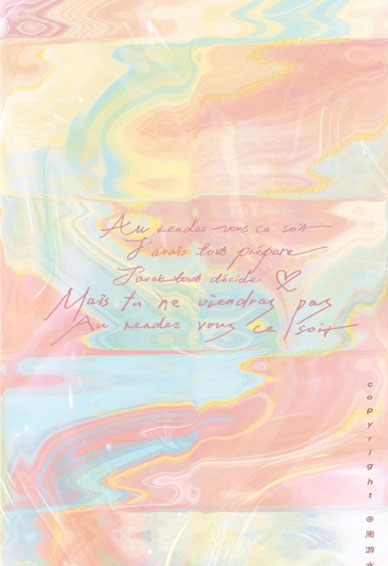 Au rendez vous ce soir
J'avais tout préparé
J'avais tout décidé
Mais tu ne viendras pas
Au rendez vous ce soir
copyright @周游水